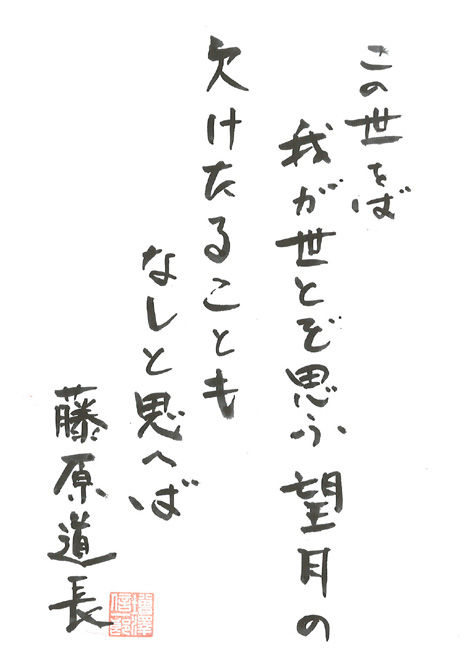 この世をば
我が世とぞ思ふ 望月の
欠けたることも
なしと思へば
藤原道長